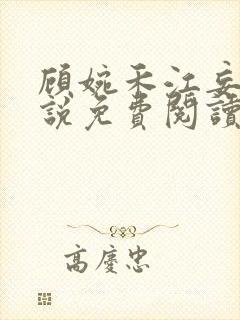 顾婉禾江妄
說免費閱讀
高慶忠